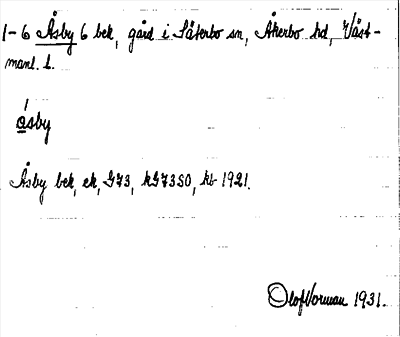 1-6 Åsby 6 bek, gård i Säterbo sn, Åkerbo hd, Väst-
manl. l.
åsby
Åsby bek, ek, G73, kG73SO, kb 1921.
Olof Vorman 1931.